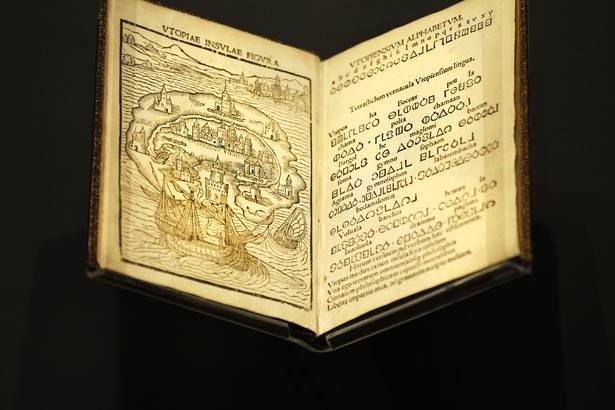 VTOPIAE INSVLAE FIGVRA
VTOPIENSIVM ALPHABETVM.
a b c d e f g h i k l m n o p q r s t v x y
Tetrastichon vernacula Vtopiensium lingua.
Vtopos ha Boccas peu la
chama polta chamaan
Bargol he maglomi baccan
soma gymno sophaon
Agrama gymnosophon labarembacha
bodamilomin
Voluala barchin heman la
lauoluola dramme pagloni.
Horum versuum ad verbum hæc est sententia.
Vtopus me dux ex non insula fecit insulam
Vna ego terrarum omnium absque philosophia
Ciuitatem philosophicam expressi mortalibus
Libēter impartio mea, nō grauatim accipio meliora.